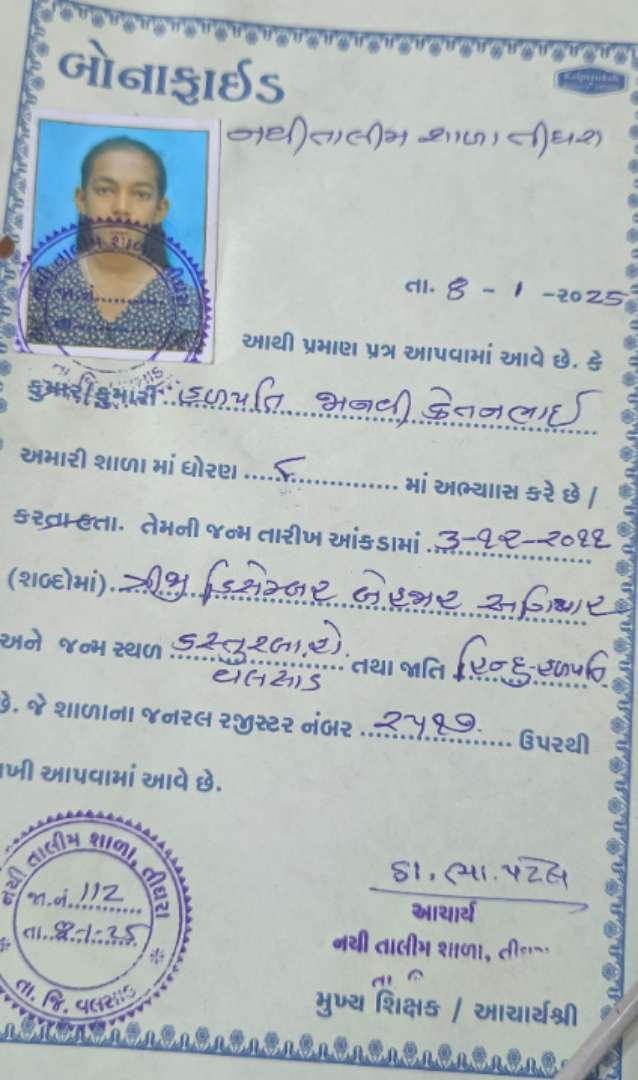 બોનાફાઈડ
Kalpvruksh
નથી તાલીમ શાળા તીઘરા
નથી તાલીમ શાળા, તીઘરા
જા.નં.
તા. 8 - 1 - ૨૦25
આથી પ્રમાણ પત્ર આપવામાં આવે છે. કે
કુમાર/કુમારી. હળપતિ જાનવી કેતનભાઈ
અમારી શાળા માં ધોરણ ૮ માં અભ્યાસ કરે છે /
કરતા હતા. તેમની જન્મ તારીખ આંકડામાં 3-૧૨-૨૦૧૧
(શબ્દોમાં) ત્રીજી ડિસેમ્બર બેહજાર અગિયાર
અને જન્મ સ્થળ કસ્તુરબા.હો. તથા જાતિ હિન્દુ-હળપતિ
વલસાડ
છે. જે શાળાના જનરલ રજીસ્ટર નંબર ૨૫૧૭ ઉપરથી
ખી આપવામાં આવે છે.
નથી તાલીમ શાળા, તીઘરા
જા.નં. 112
તા. 8-1-25
તા. જિ. વલસાડ
ડા. ભા. પટેલ
આચાર્ય
નથી તાલીમ શાળા,
તા
મુખ્ય શિક્ષક / આચાર્યશ્રી